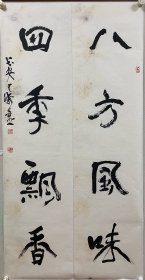 八方風味
四季飄香